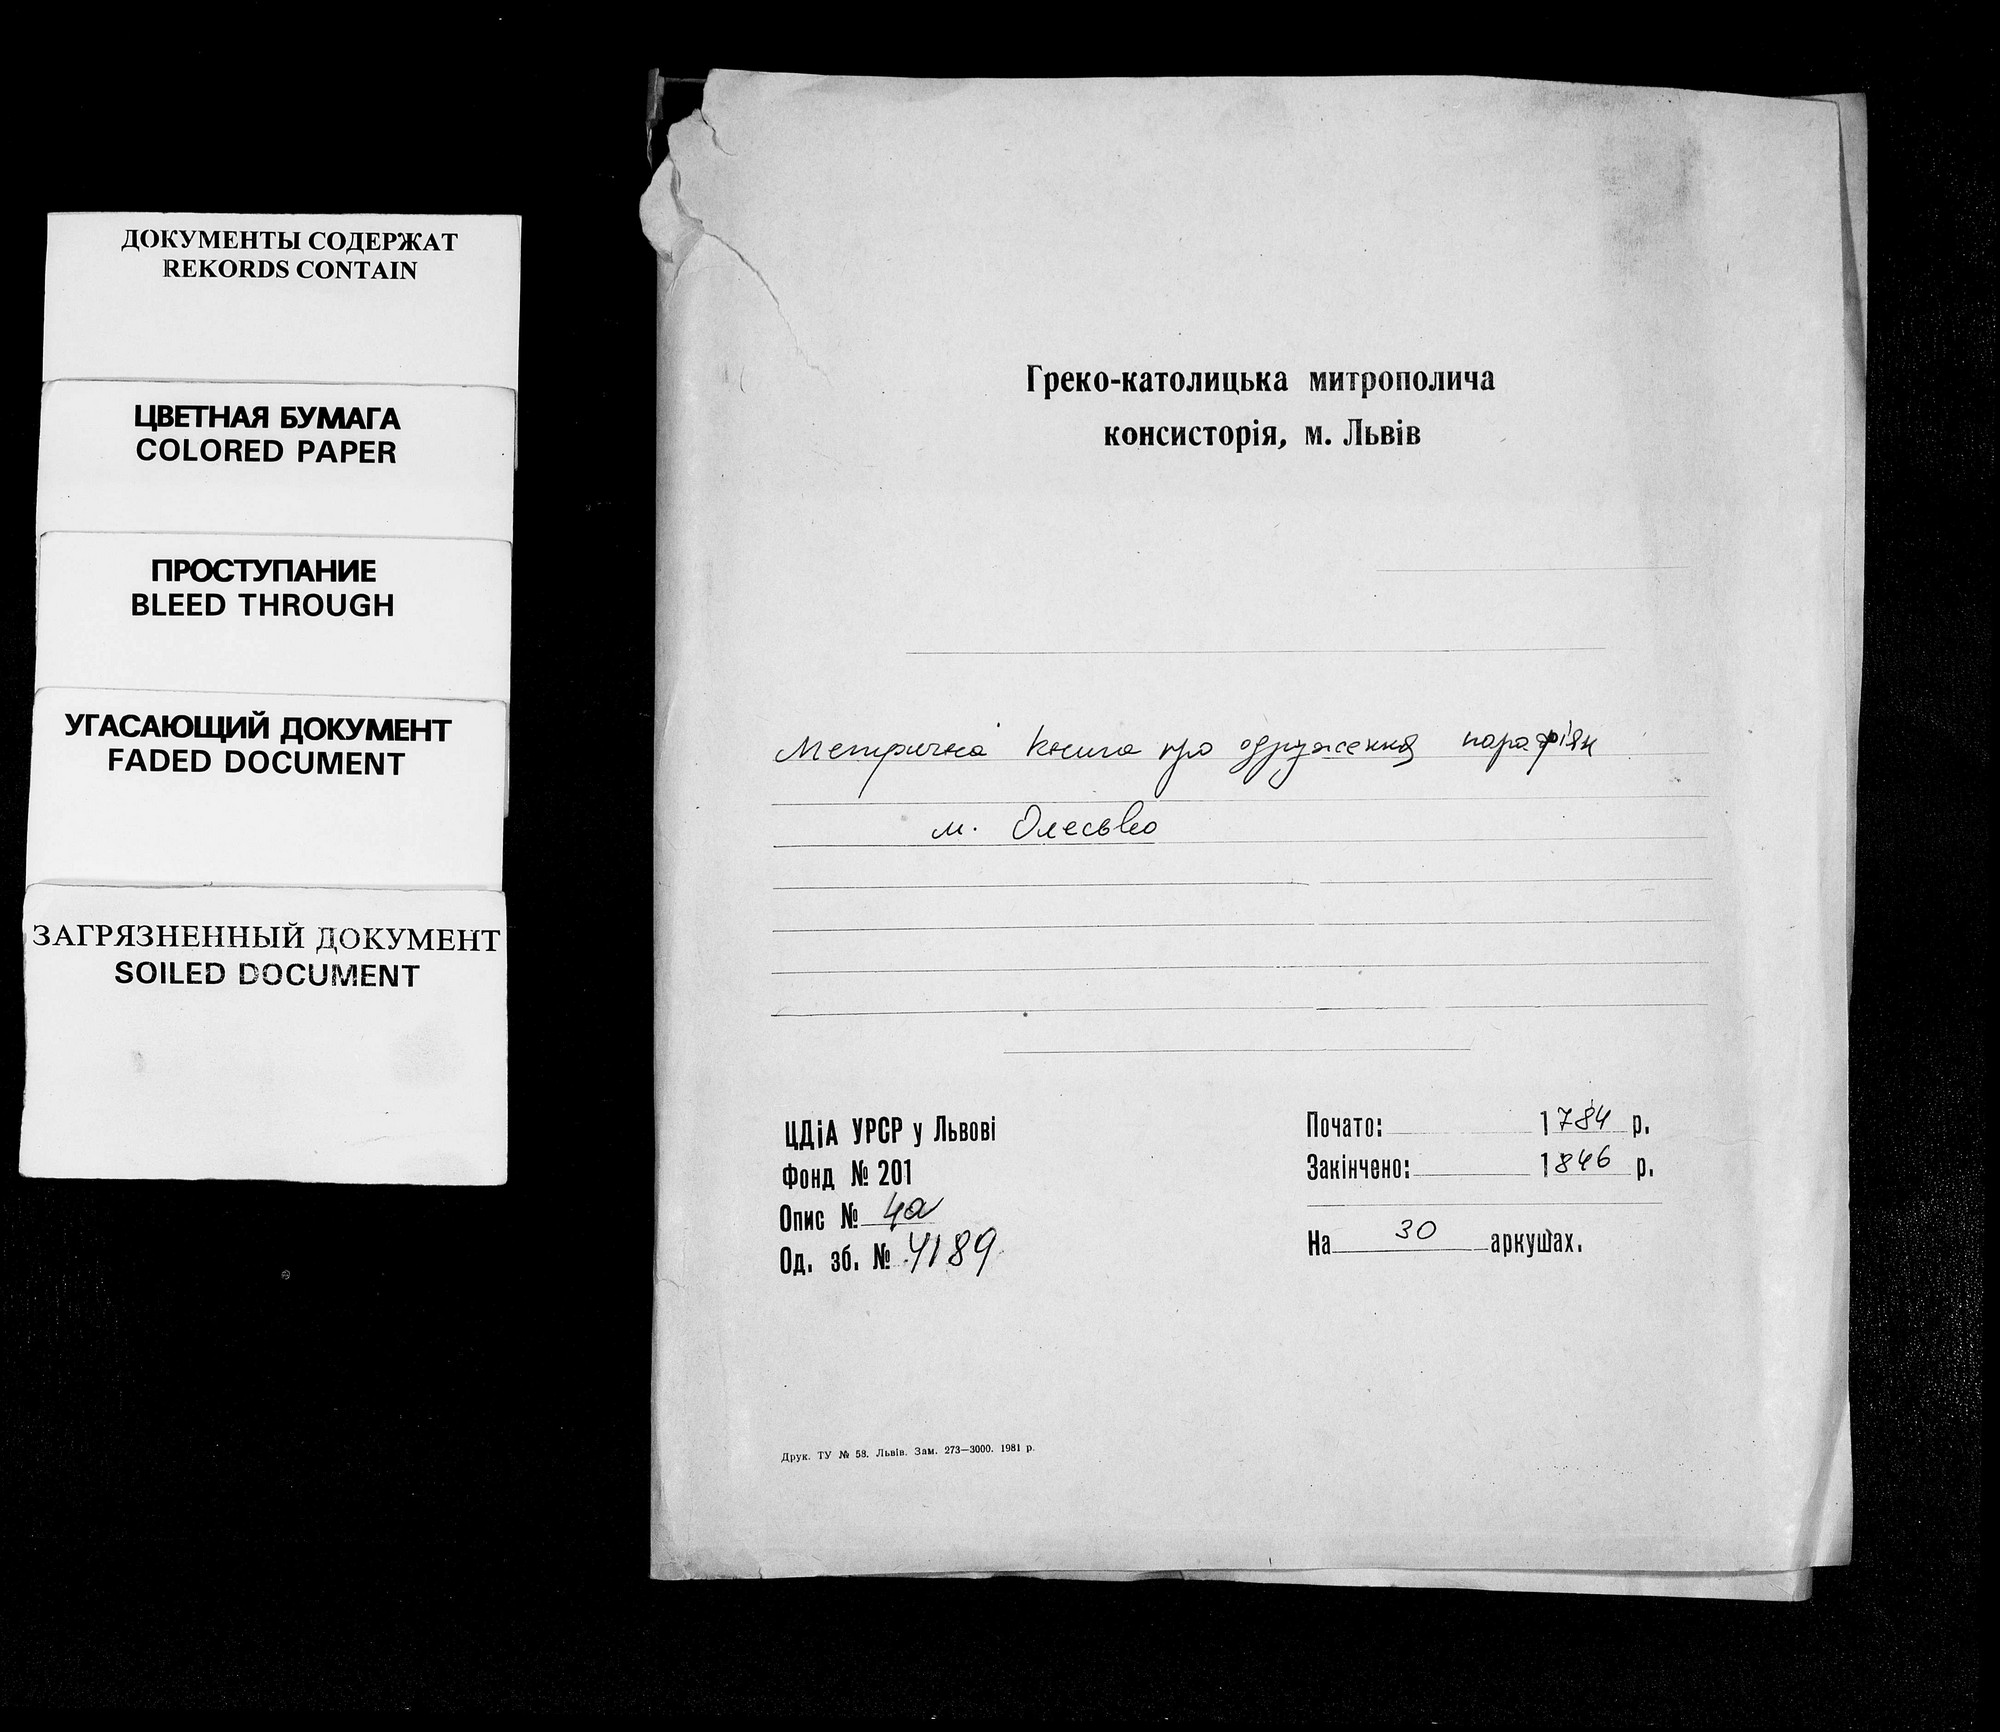 ДОКУМЕНТЫ СОДЕРЖАТ
REKORDS CONTAIN
ЦВЕТНАЯ БУМАГА
COLORED PAPER
ПРОСТУПАНИЕ
BLEED THROUGH
УГАСАЮЩИЙ ДОКУМЕНТ
FADED DOCUMENT
ЗАГРЯЗНЕННЫЙ ДОКУМЕНТ
SOILED DOCUMENT
Греко-католицька митрополича
консисторія, м. Львів
Метрична книга про одруження парафіян
м. Олесько
ЦДіА УРСР у Львові
Фонд № 201
Опис № 4а
Од. зб. № 4189
Почато: 1784 р.
Закінчено: 1846 р.
На 30 аркушах.
Друк. ТУ № 58. Львів. Зам. 273—3000. 1981 р.